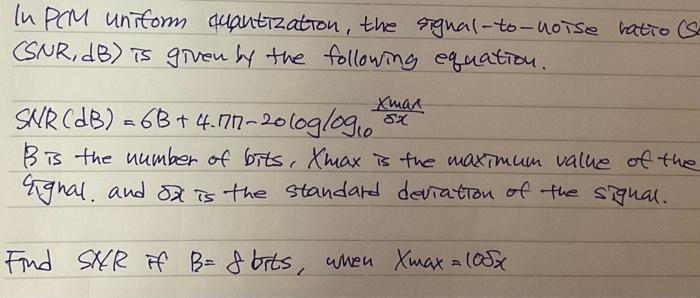 In PCM uniform quantization, the signal-to-noise ratio
(SNR, dB) is given by the following equation.
SNR(dB) = 6B + 4.77 - 20 log log₁₀ Xmax/σx
B is the number of bits, Xmax is the maximum value of the
signal. and σx is the standard deviation of the signal.
Find SNR if B= 8 bits, when Xmax = 10σx